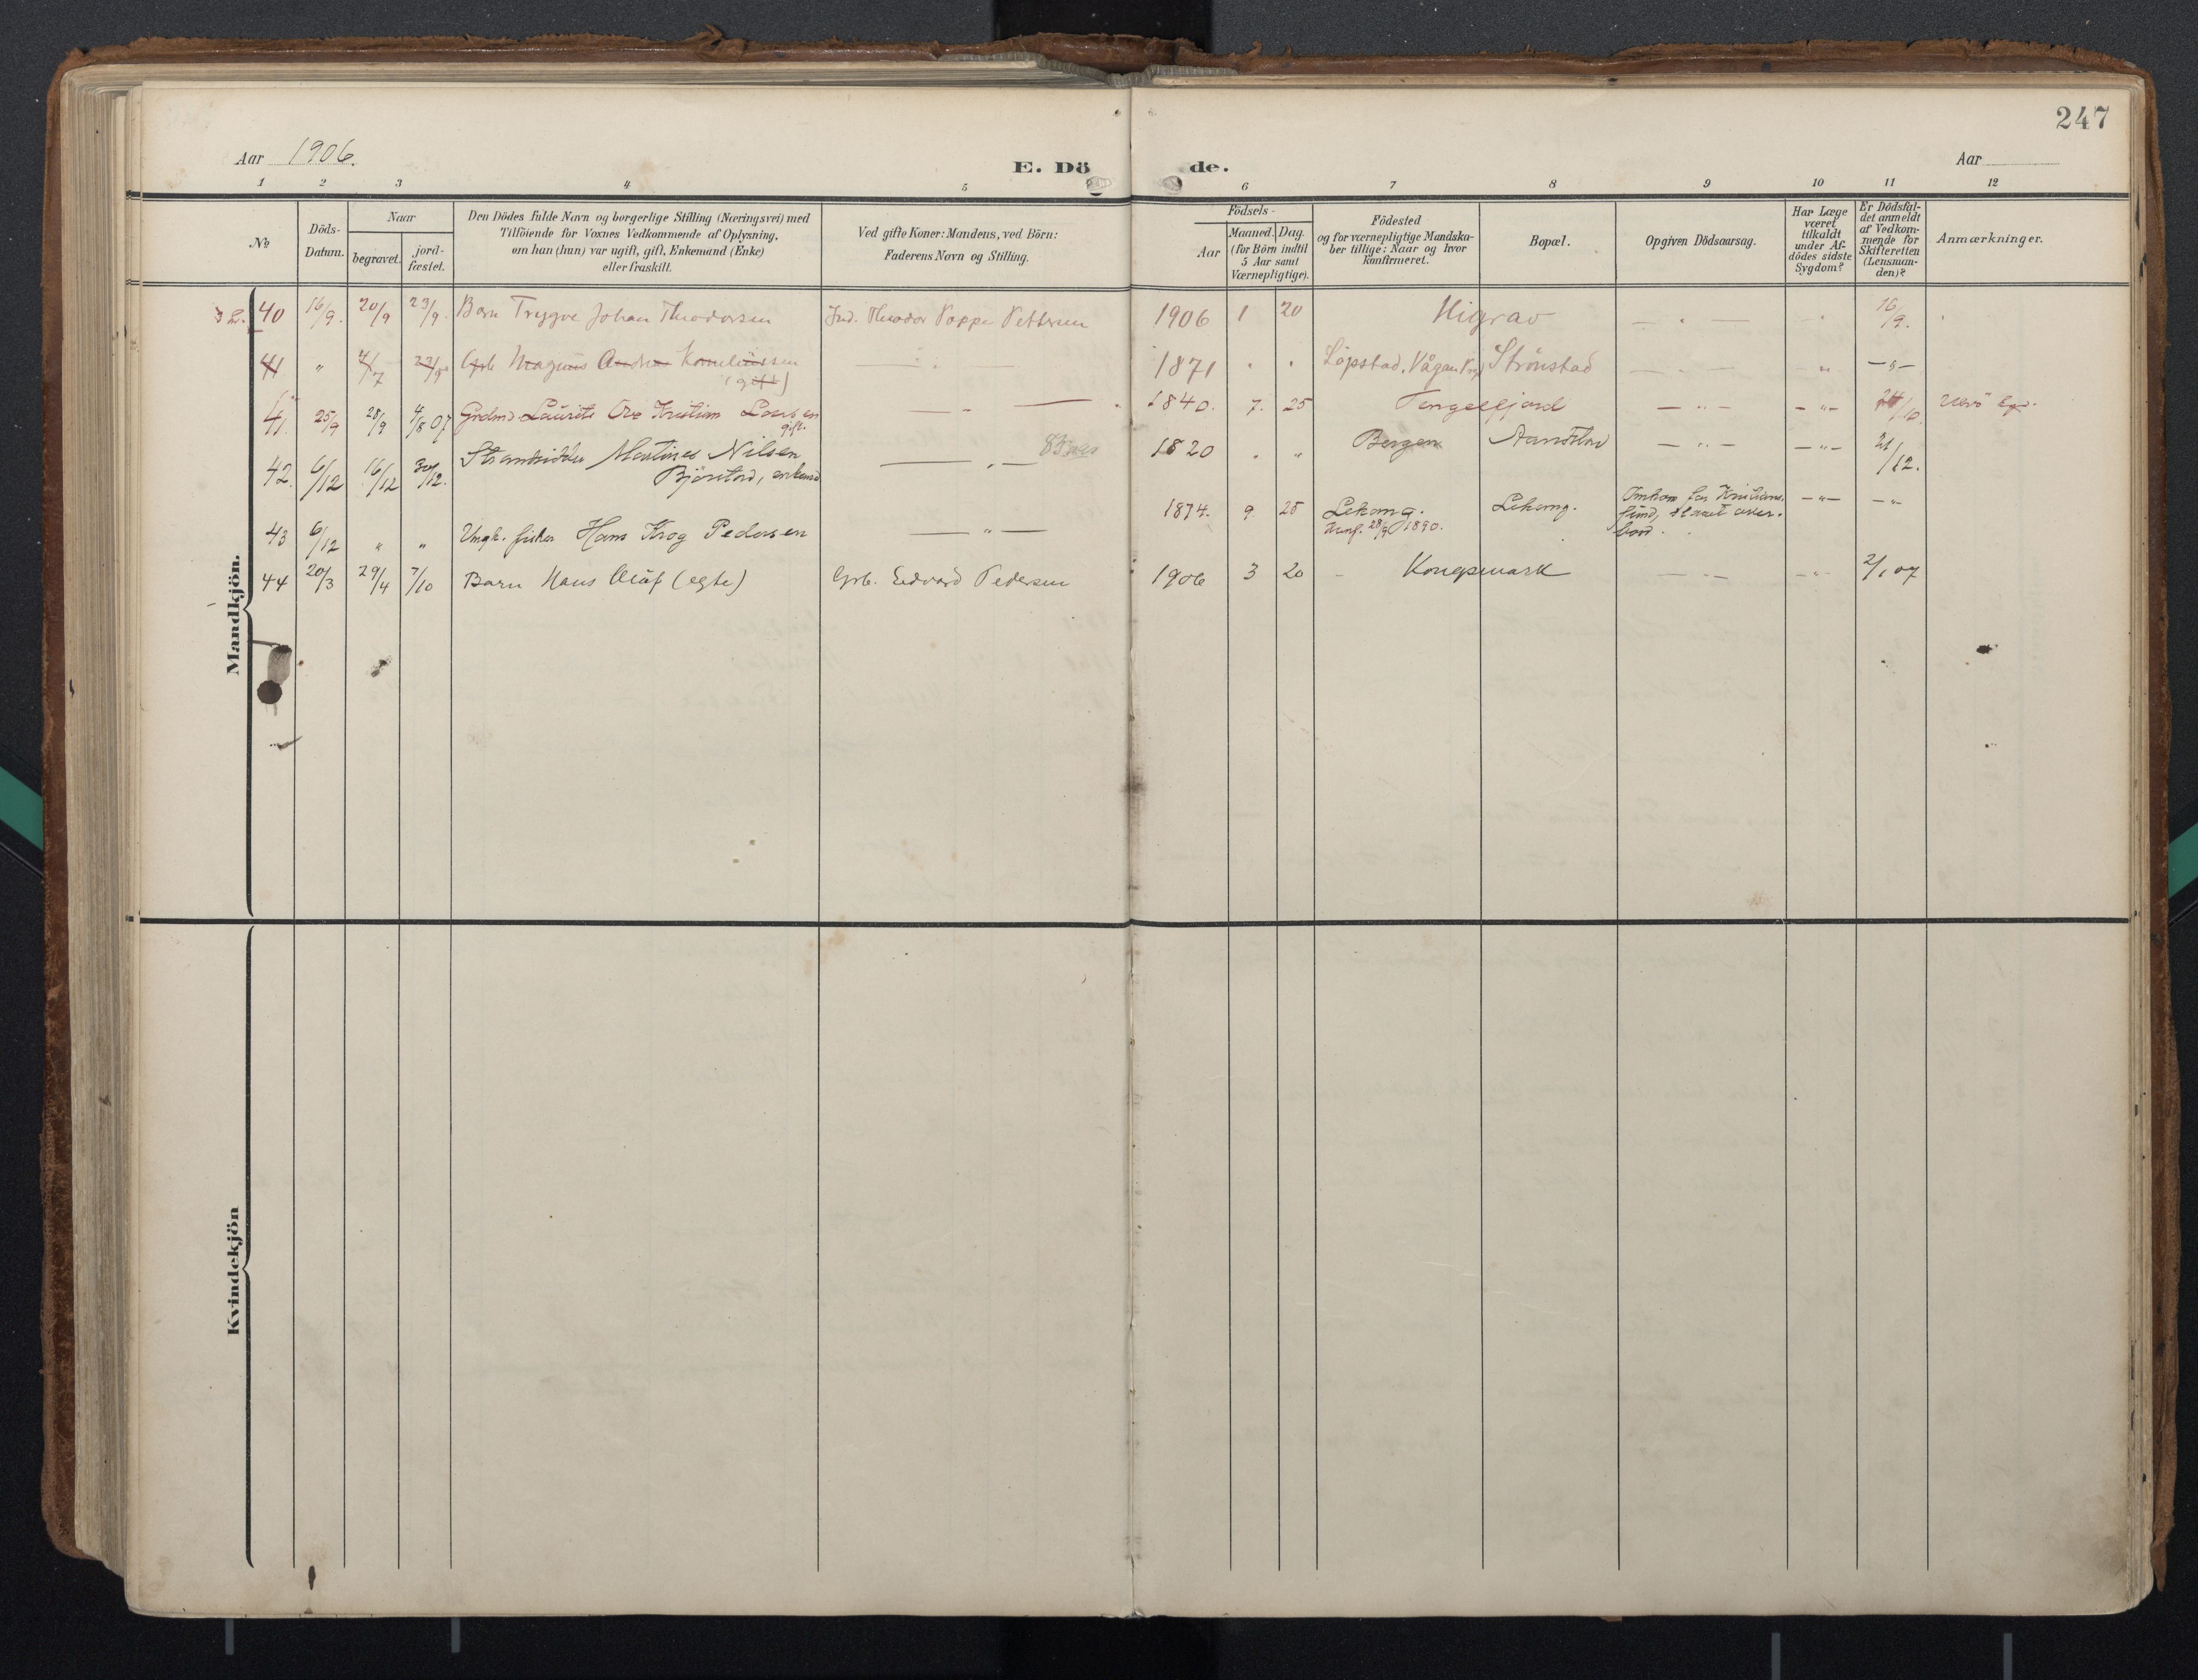 247
Aar 1906.
E. Dö de.
Aar
1 2 3 4 5 6 7 8 9 10 11 12
No
Döds-
Datum.
Naar
begravet.
jord-
fæstet.
Den Dödes fulde Navn og borgerlige Stilling (Næringsvei) med
Tilföiende for Voxnes Vedkommende af Oplysning,
om han (hun) var ugift, gift, Enkemand (Enke)
eller fraskilt.
Ved gifte Koner: Mandens, ved Börn:
Faderens Navn og Stilling.
Födsels-
Aar
Maaned. Dag.
(for Börn indtil
5 Aar samt
Værnepligtige).
Födested
og for værnepligtige Mandska-
ber tillige: Naar og hvor
konfirmeret.
Bopæl.
Opgiven Dödsaarsag.
Har Læge
været
tilkaldt
under Af-
dödes sidste
Sygdom?
Er Dödsfal-
det anmeldt
af Vedkom-
mende for
Skifteretten
(Lensman-
den)?
Anmærkninger.
Mandkjön.
40 16/9. 20/9 23/9. Barn Trygve Johan Theodorsen Ind. Theodor Poppe Pettersen 1906 1 20 Higrav — " — " 16/9.
41 " 4/7 23/9 Grb Magnus Andreas Korneliussen — " — 1871 " " Löpstad, Vågan Strönstad — " — " — " —
(gift)
41. 25/9 28/9 4/8 07 Grdmd. Laurits Ove Kristian Larsen — " — 1840. 7. 25 Tengelfjord — " — — " — /10
gift.
42. 6/12 16/12 30/12. Strandsidder Martines Nilsen — " — 1820 " " Bergen Sandslav — " — — " — 21/12.
Björstad, enkemd
43 6/12 " " Ungk. fisker Hans Krog Pedersen — " — 1874. 9. 25 Lekang. Lekang. Omkom for Kristians- — " — — " —
Konf. 28/9 1890. sund, slaaet over-
bord.
44 20/3 29/4 7/10 Barn Hans Olaf (egte) Grb. Edvard Pedersen 1906 3 20 – Kongsmark — " — — " — 2/1 07
Kvindekjön